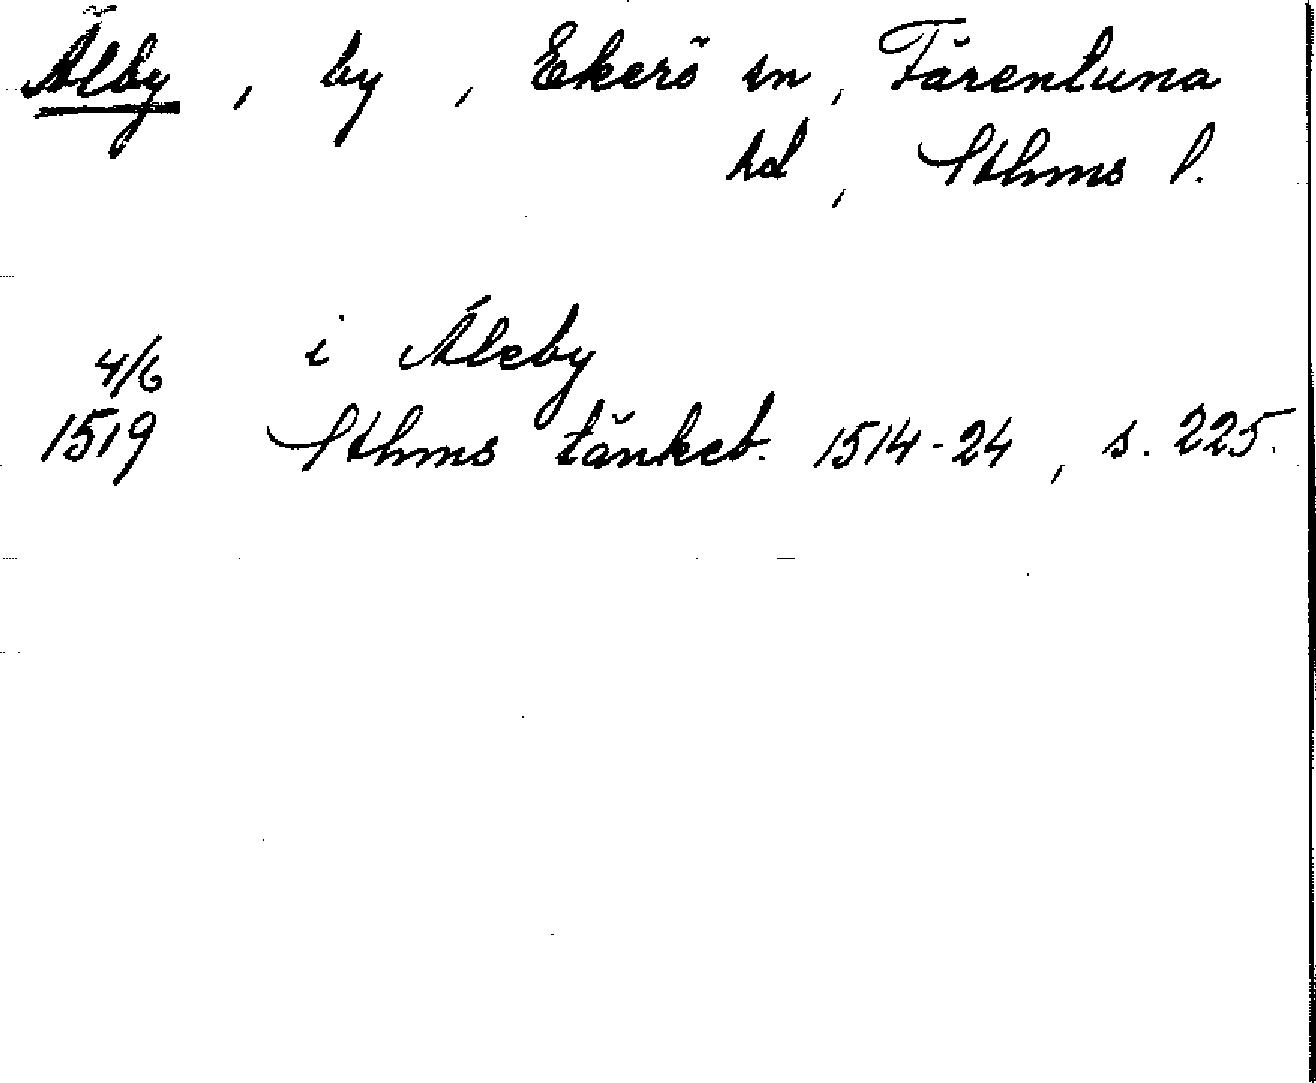 Älby, by, Ekerö sn, Färentuna
hd, Sthms l.
4/6 i Äleby
1519 Sthms tänkeb. 1514-24, s. 225.